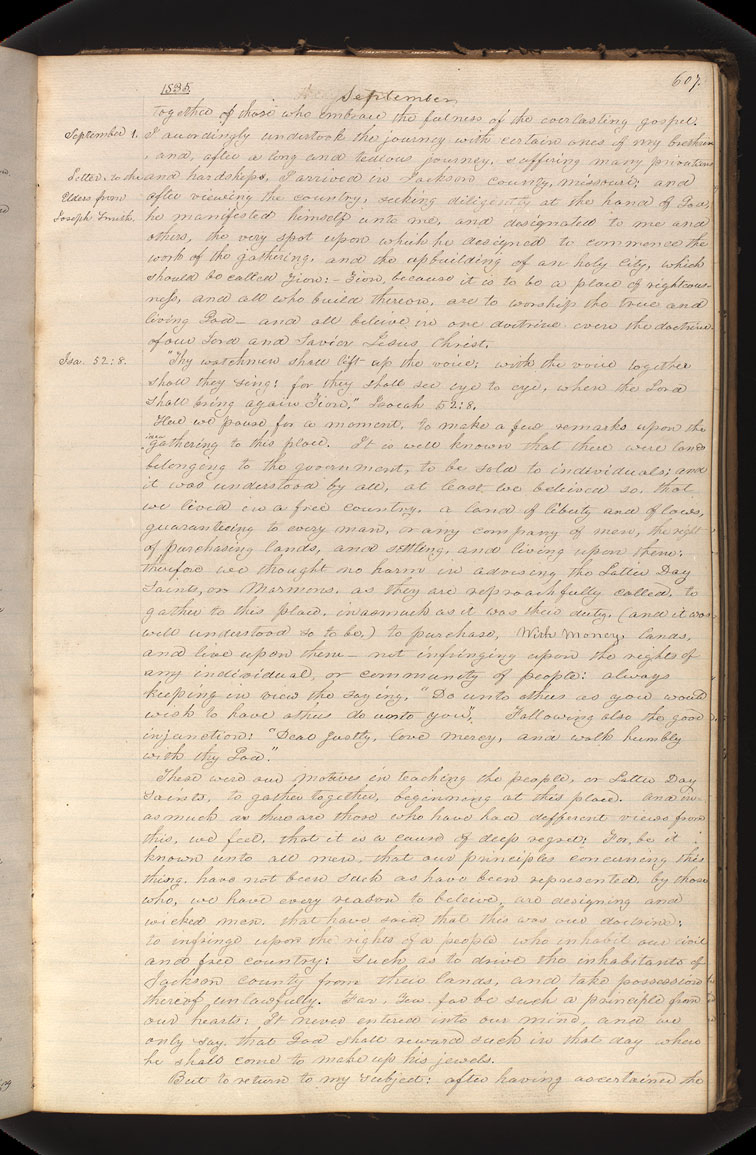 1835
September
607.
together of those who embrace the fulness of the everlasting gospel.
September 1.
I accordingly undertook the journey with certain ones of my brethren
, and, after a long and tedious journey, suffering many privations
Letter to the
and hardships, I arrived in Jackson county, missouri; and
Elders from
after viewing the country, seeking diligently at the hand of God,
Joseph Smith.
he manifested himself unto me, and designated to me and
others, the very spot upon which he designed to commence the
work of the gathering, and the upbuilding of an holy city, which
should be called Zion:— Zion because it is to be a place of righteous-
ness, and all who build thereon, are to worship the true and
living God— and all beleive in one doctrine even the doctrine
of our Lord and Savior Jesus Christ.
Isa. 52:8.
"Thy watchmen shall lift up the voice; with the voice together
shall they sing: for they shall see eye to eye, when the Lord
shall bring again Zion." Isaiah 52:8.
Here we pause for a moment, to make a few remarks upon the
gathering to this place. It is well known that there were lands
belonging to the government, to be sold to individuals; and
it was understood by all, at least we beleived so, that
we lived in a free country, a land of liberty and of laws,
guaranteeing to every man, or any company of men, the right
of purchasing lands, and settling, and living upon them:
therefore we thought no harm in advising the Latter Day
Saints, or Mormons, as they are reproachfully called, to
gather to this place, inasmuch as it was their duty, (and it was
well understood so to be,) to purchase, With Money, lands,
and live upon them— not infringing upon the rights of
any individual, or community of people: always
keeping in view the saying, "Do unto others as you would
wish to have others do unto you". Following also the good
injunction: "Deal justly, love mercy, and walk humbly
with thy God."
These were our motives in teaching the people, or Latter Day
Saints, to gather together, beginning at this place. And in-
asmuch as there are those who have had defferent views from
this, we feel, that it is a cause of deep regret: For, be it
known unto all men, that our principles concerning this
thing, have not been such as have been represented by those
who, we have every reason to beleive, are designing and
wicked men, that have said that this was our doctrine;
to infringe upon the rights of a people who inhabit our civil
and free country: Such as to drive the inhabitants of
Jackson county from their lands, and take possession
thereof unlawfully. Far, Yea far be such a principle from
our hearts: It never entered into our mind, and we
only say, that God shall reward such in that day when
he shall come to make up his jewels.
But to return to my subject: after having ascertained the